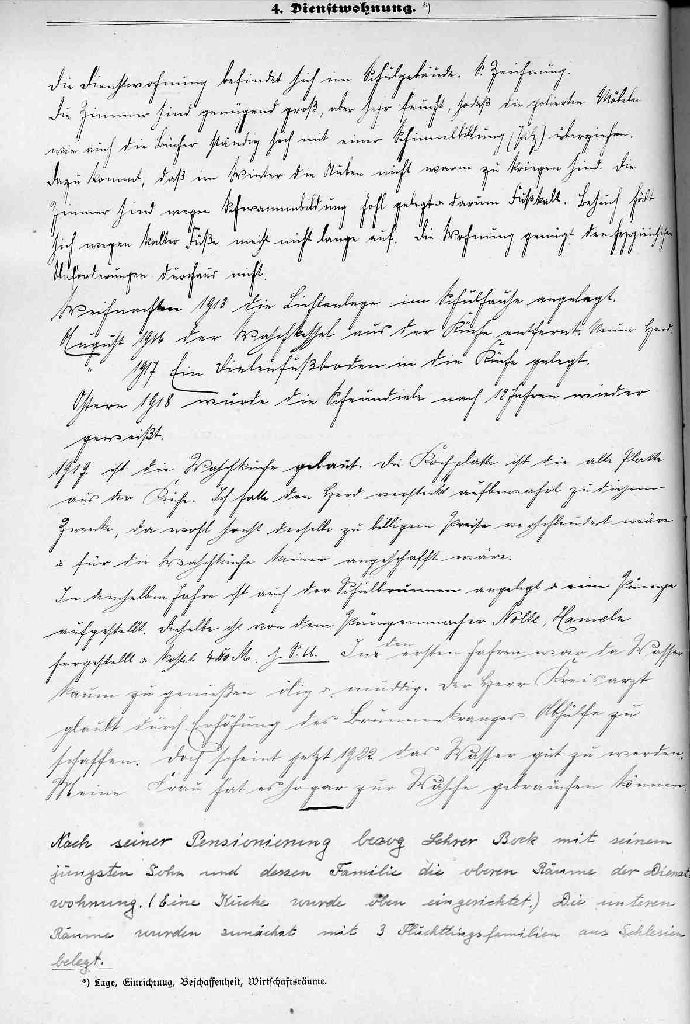 4. Dienstwohnung. *)
Die Dienstwohnung befindet sich im Schulgebäude. S. Zeichnung.
Die Zimmer sind genügend groß, aber sehr feucht, sodaß die polierten Möbeln
wie auch die Bücher ständig sich mit einer Schimmelbildung (Pilz) überziehen.
Dazu kommt, daß im Winter die Stuben nicht warm zu kriegen sind. Die
Zimmer sind wegen Schwammbildung hohl gelegt u darum Fußkalt. Besuch hält
sich wegen kalter Füße meist nicht lange auf. Die Wohnung genügt den
Anforderungen durchaus nicht.
Weihnachten 1913 die Lichtanlage im Schulhause angelegt.
August 1916 der Waschkessel aus der Küche entfernt. Neuer Herd.
" 1917 Ein Dielenfußboden in die Küche gelegt.
Ostern 1918 wurde die Scheundiele nach 18 Jahren wieder
geweißt.
1919 ist die Waschküche gebaut. Die Kochplatte ist die alte Platte
aus der Küche. Ich hatte den Herd versteckt aufbewahrt zu diesem
Zwecke, da wohl sonst derselbe zu billigem Preise verschleudert wäre
u für die Waschküche keiner angeschafft wäre.
In demselben Jahre ist auch der Schulbrunnen angelegt u eine Pumpe
aufgestellt. Derselbe ist von dem Pumpenmacher Nolte, Hameln
hergestellt u kostet 400 M. In den ersten Jahren war das Wasser
kaum zu genießen ölig u. muddig. Der Herr Kreisarzt
glaubt durch Erhöhung des Brunnenkranzes Abhülfe zu
schaffen. Doch scheint jetzt 1922 das Wasser gut zu werden.
Meine Frau hat es sogar zur Wäsche gebrauchen können.
Nach seiner Pensionierung bezog Lehrer Bock mit seinem
jüngsten Sohn und dessen Familie die oberen Räume der Dienst
wohnung. (Eine Küche wurde oben eingerichtet.) Die unteren
Räume wurden zunächst mit 3 Flüchtlingsfamilien aus Schlesien
belegt.
*) Lage, Einrichtung, Beschaffenheit, Wirtschaftsräume.